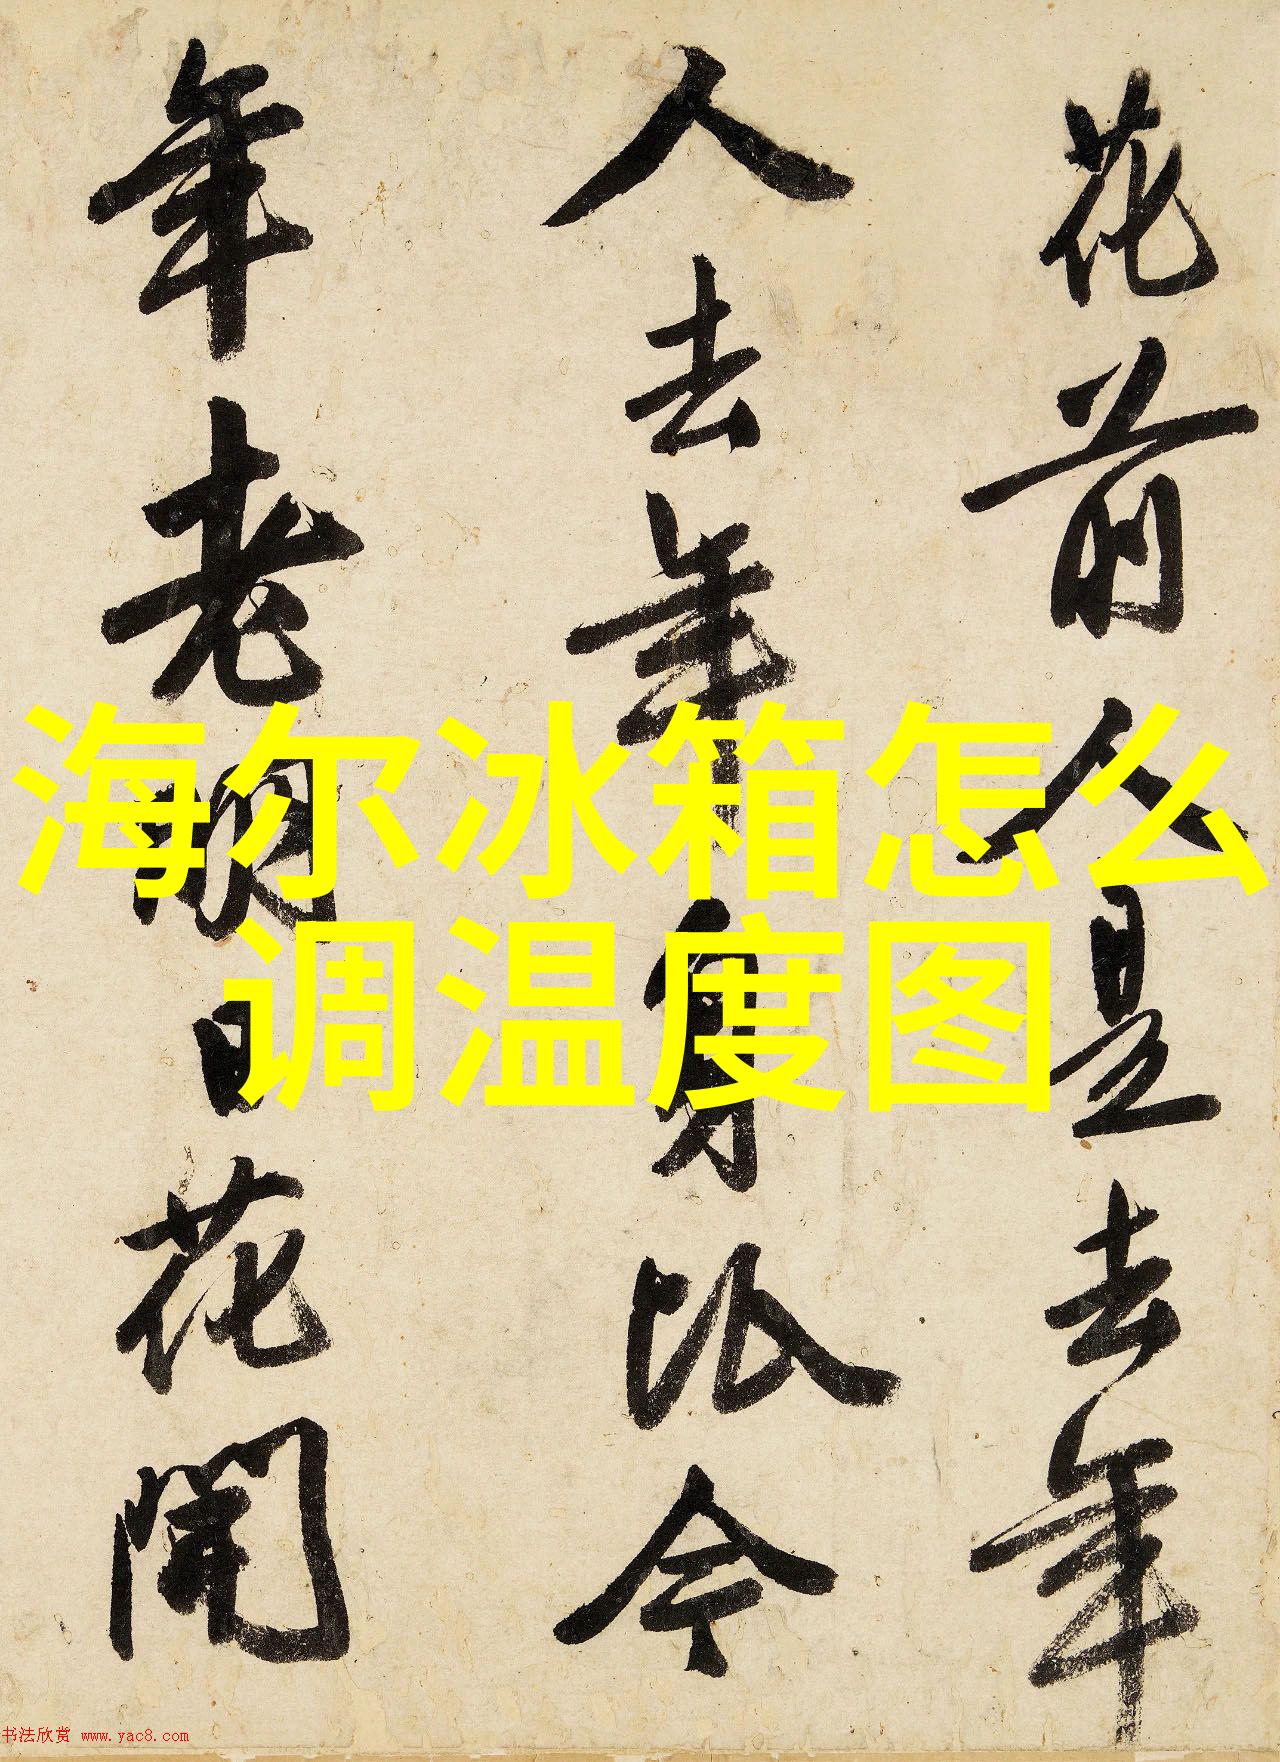 花前人是去年
人去年身比今
年老明日花開
海尔冰箱怎么
调温度图
书法欣赏 www.yac8.com